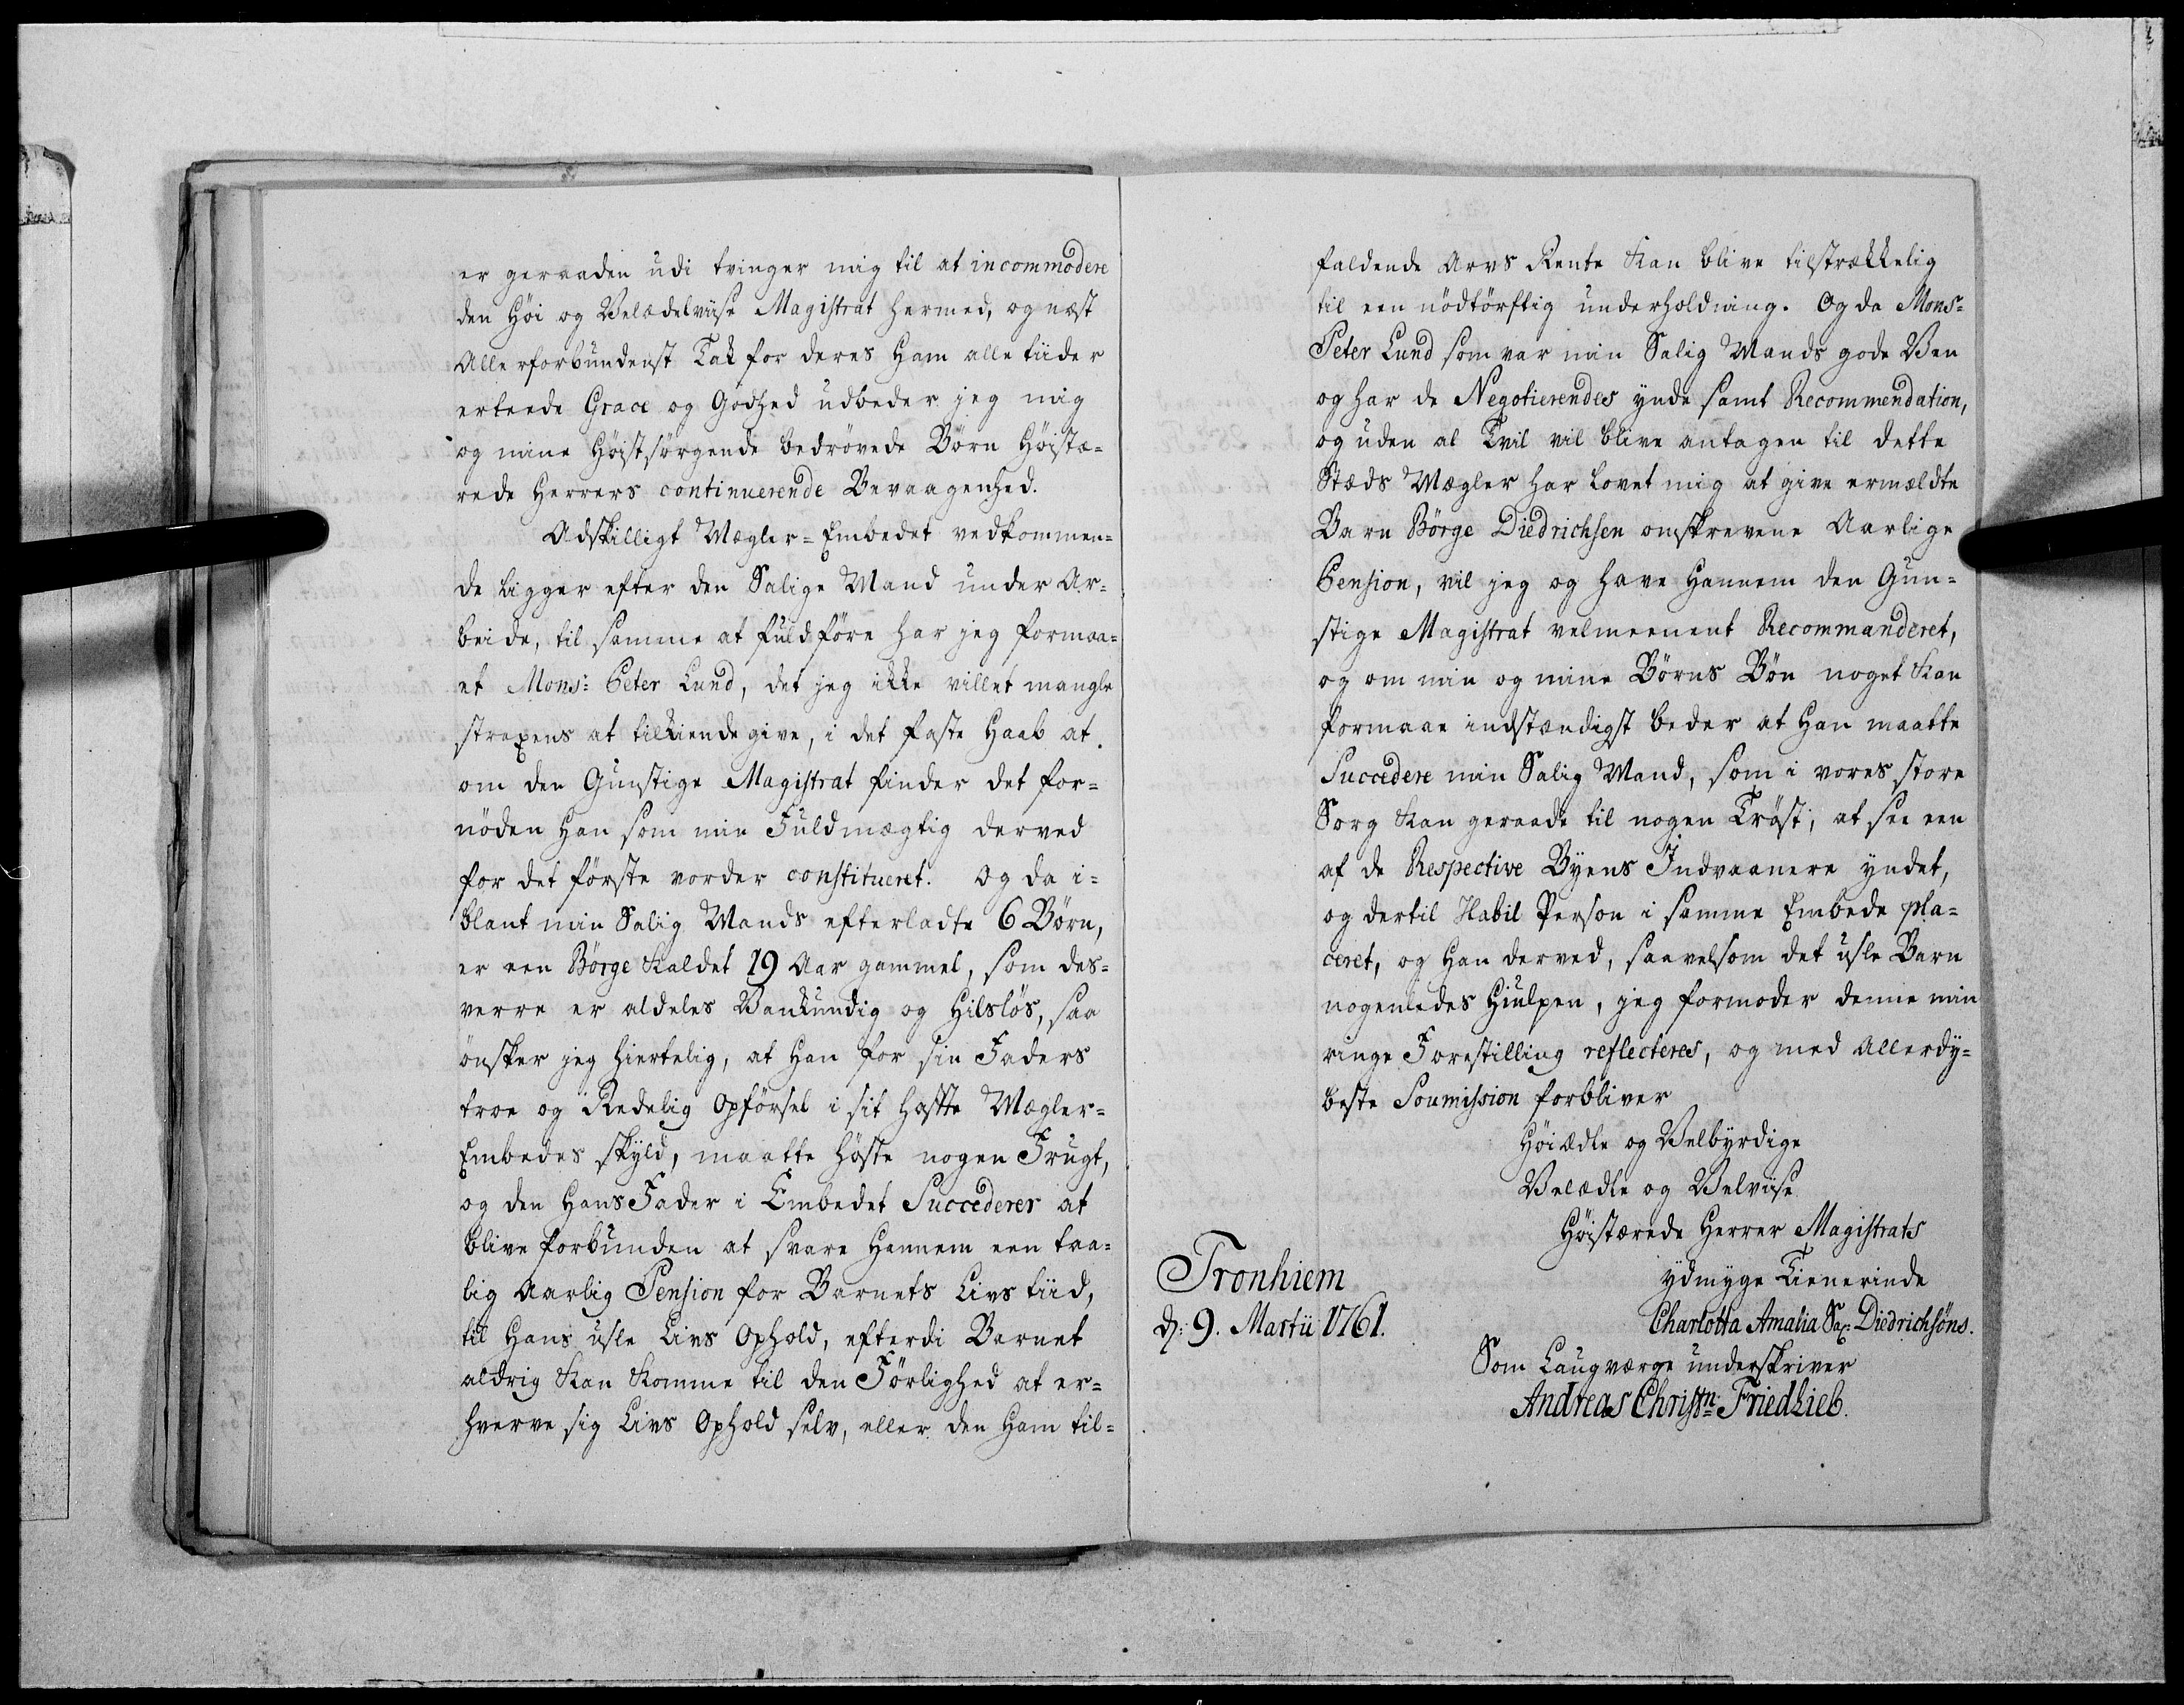 er geraaden udi tvinger mig til at incommodere
den Höi og Velædelviise Magistrat hermed, og næst
Allerforbundenst Tak for deres Ham alle tiider
erteede Grace og Godhed udbeder jeg mig
og mine Höistsörgende bedrövede Börn Höistæ=
rede Herrers continuerende Bevaagenhed.
Adskilligt Mægler=Embedet vedkommen=
de ligger efter den Salige Mand under Ar=
beide, til samme at fuldföre har jeg formaa=
et Mons: Peter Lund, det jeg ikke villet mangle
straxens at tilkiendegive, i det faste Haab at
om den Gunstige Magistrat finder det for=
nöden Han som min Fuldmægtig derved
for det förste vorder constitueret. Og da i=
blant min Salig Mands efterladte 6 Börn,
er een Börge Kaldet 19 Aar gammel, som des=
verre er aldeles Vankundig og Hilslös, saa
önsker jeg hiertelig, at Han for sin Faders
troe og Redelig Opförsel i sit hafte Mægler=
Embedes skyld, maatte höste nogen Frugt,
og den Hans Fader i Embedet Succederer at
blive forbunden at svare Hannem een taa=
lig Aarlig Pension for Barnets Livs tiid,
til Hans usle Livs Ophold, efterdi Barnet
aldrig Kan Komme til den Förlighed at er=
hverve sig Livs Ophold selv, eller den Ham til=
faldende Arvs Rente Kan blive tilstrækkelig
til een nödtörftig underholdning. Og da Mons:
Peter Lund som var min Salig Mands gode Ven
og har de Negotierendes ynde samt Recommendation,
og uden al Tvil vil blive antagen til dette
Stæds Mægler har lovet mig at give ermældte
Barn Börge Diedrichsen omskrevene Aarlige
Pension, vil jeg og have Hannem den Gun=
stige Magistrat velmeenent Recommanderet,
og om min og mine Börns Bön noget Kan
formaae indstændigst beder at Han maatte
Succedere min Salig Mand, som i vores store
Sorg Kan geraade til nogen Tröst, at see een
af de Respective Byens Indvaanere yndet,
og dertil Habil Person i samme Embede pla=
ceret, og Han derved, saavelsom det usle Barn
nogenledes Hiulpen, jeg formoder denne min
ringe Forestilling reflecteres, og med Allerdy=
beste Soumission forbliver
Höiædle og Velbyrdige
Velædle og Velviise
Höistærede Herrer Magistrats
ydmyge Tienerinde
Charlotta Amalia Sa: Diedrichsöns.
Tronhiem
d: 9. Martii 1761.
Som Laugværge underskriver
Andreas Christn: Friedlieb.